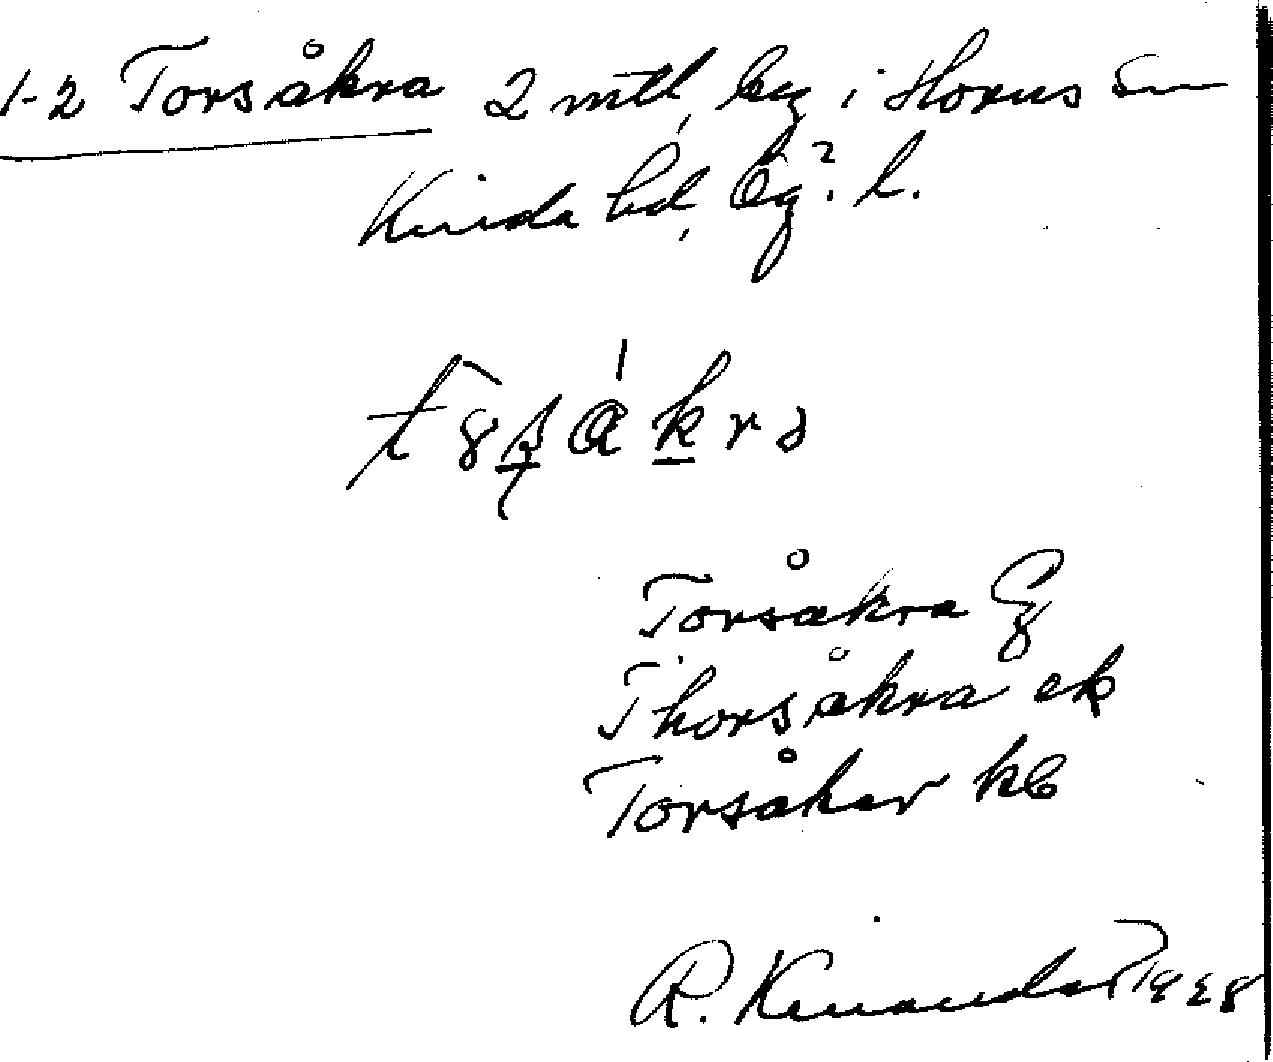 1-2 Torsåkra 2 mtl, by i Horns sn
Kinda hd, Ög. l.
Torsåkra
Thorsåkra ek
Torsåker kb
R. Kinander 1928